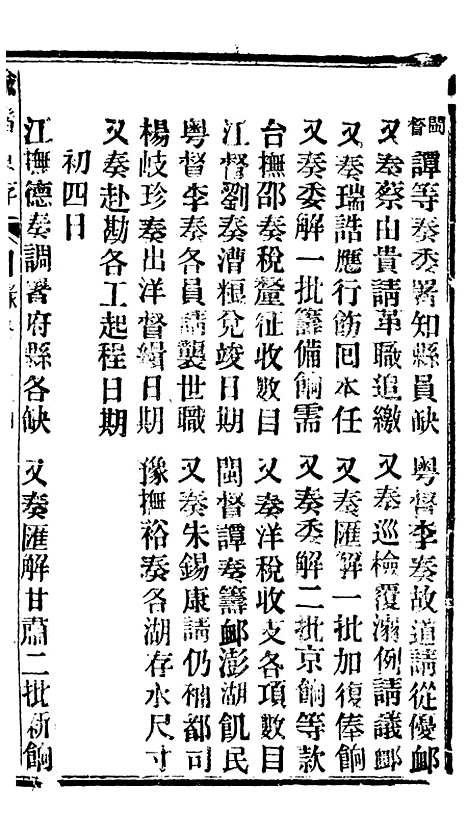 閩督譚等奏委署知縣員缺　粵督李奏故道請從優䘏
又奏蔡由貴請革職追繳　又奏巡檢覆溺例請議䘏
又奏瑞誥應行飭囘本任　又奏匯解一批加復俸餉
又奏委解一批籌備餉需　又奏委解二批京餉等款
台撫邵奏稅釐征收數目　又奏洋稅收支各項數目
江督劉奏漕糧兌竣日期　閩督譚奏籌䘏澎湖飢民
粵督李奏各員請襲世職　又奏朱錫康請仍補都司
楊岐珍奏出洋督緝日期　豫撫裕奏各湖存水尺寸
又奏赴勘各工起程日期
初四日
江撫德奏調署府縣各缺　又奏匯解甘肅二批新餉